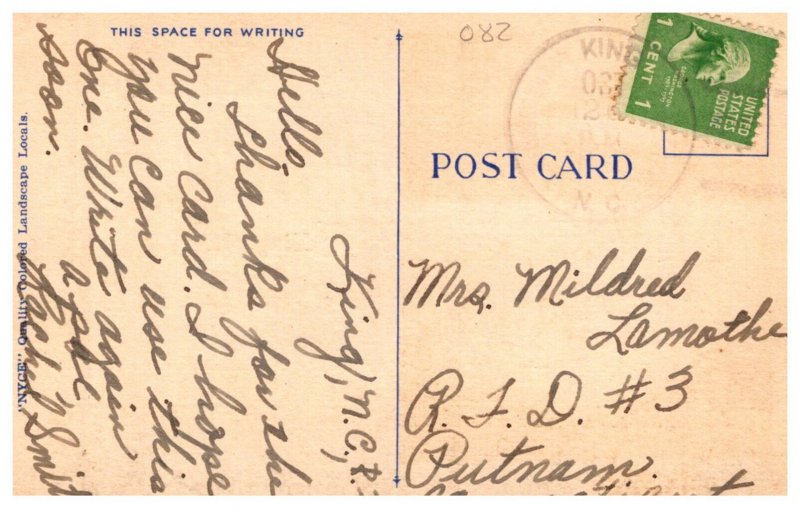 THIS SPACE FOR WRITING
082
King, N.C.,
Hello.
Thanks for the
nice card. I hope
you can use this
one. Write again
soon.
a pal
Rachel Smit
"NYCE" Quality Colored Landscape Locals.
KING
N.C.
1 CENT 1
GEORGE WASHINGTON
UNITED STATES POSTAGE
POST CARD
Mrs. Mildred
Lamothe
R. F. D. #3
Putnam.